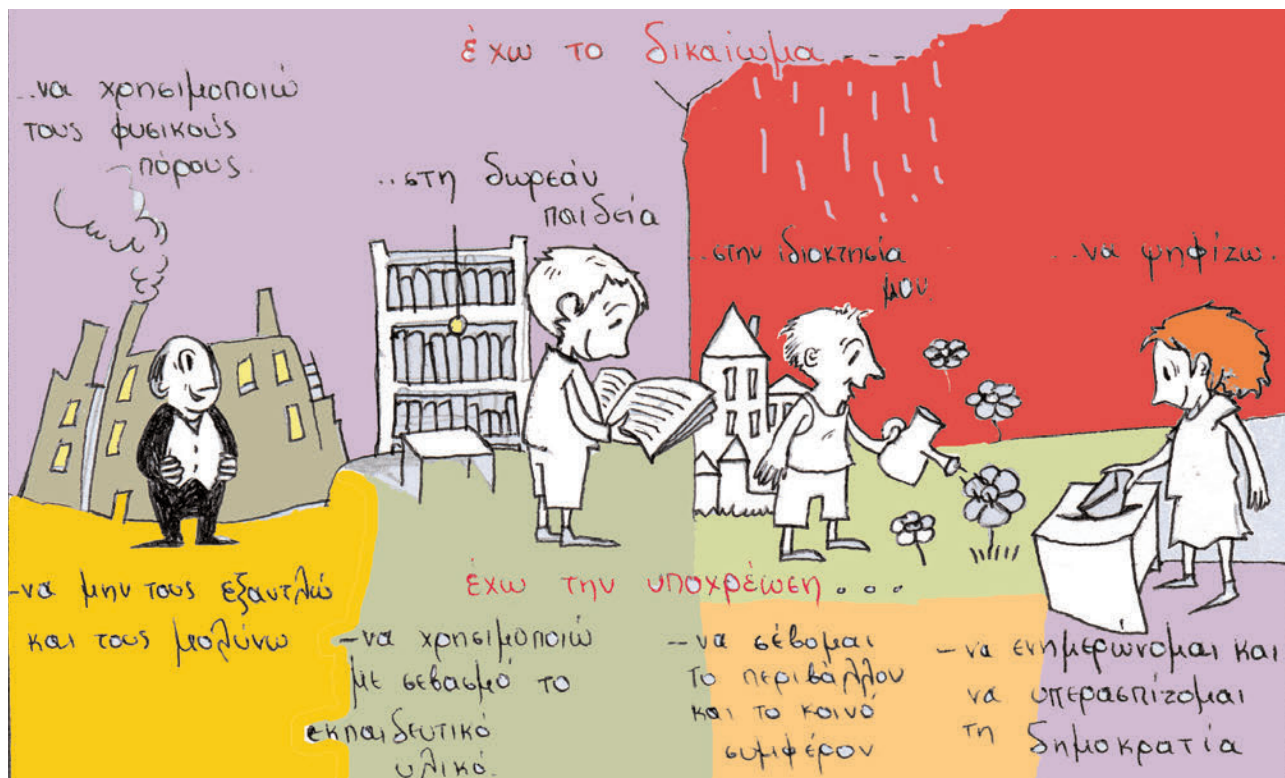 έχω το δικαίωμα - - - -
..να χρησιμοποιώ
τους φυσικούς
πόρους.
..στη δωρεάν
παιδεία
..στην ιδιοκτησία
μου.
...να ψηφίζω..
-να μην τους εξαντλώ
και τους μολύνω
έχω την υποχρέωση...
--να χρησιμοποιώ
με σεβασμό το
εκπαιδευτικό
υλικό.
--να σέβομαι
το περιβάλλον
και το κοινό
συμφέρον
-να ενημερώνομαι και
να υπερασπίζομαι
τη δημοκρατία